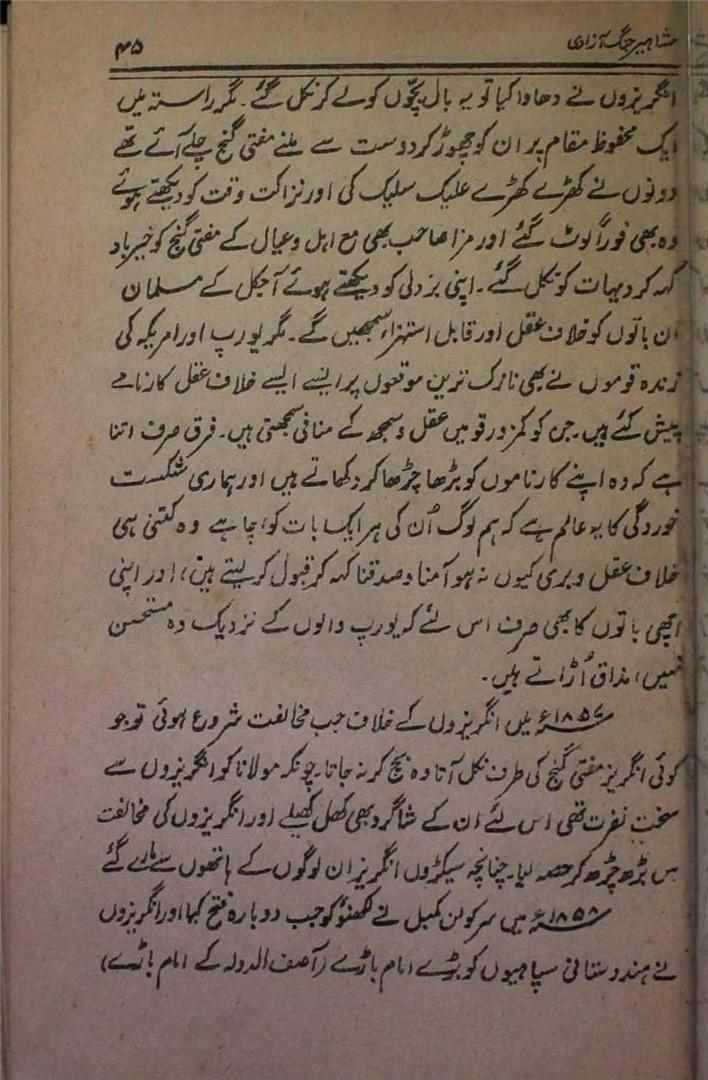 مشاہیر جنگ آزادی
۴۵
انگریزوں نے دھاوا کیا تو یہ بال بچّوں کو لے کر نکل گئے۔ مگر راستہ میں
ایک محفوظ مقام پر ان کو چھوڑ کر دوست سے ملنے مفتی گنج چلے آئے تھے
دونوں نے کھڑے کھڑے علیک سلیک کی اور نزاکت وقت کو دیکھتے ہوئے
وہ بھی فوراً لوٹ گئے اور مرزا صاحب بھی مع اہل و عیال کے مفتی گنج کو خیرباد
کہہ کر دیہات کو نکل گئے۔ اپنی بزدلی کو دیکھتے ہوئے آجکل کے مسلمان
ان باتوں کو خلاف عقل اور قابل استہزاء سمجھیں گے۔ مگر یورپ اور امریکہ کی
زندہ قوموں نے بھی نازک ترین موقعوں پر ایسے ایسے خلاف عقل کارنامے
پیش کئے ہیں۔ جن کو کمزور قومیں عقل و سمجھ کے منافی سمجھتی ہیں۔ فرق صرف اتنا
ہے کہ وہ اپنے کارناموں کو بڑھا چڑھا کر دکھاتے ہیں اور ہماری شکست
خوردگی کا یہ عالم ہے کہ ہم لوگ اُن کی ہر ایک بات کو، چاہے وہ کتنی ہی
خلاف عقل و بری کیوں نہ ہو آمنا و صدقنا کہہ کر قبول کر لیتے ہیں، اور اپنی
اچھی باتوں کا بھی صرف اس لئے کہ یورپ والوں کے نزدیک وہ مستحسن
نہیں، مذاق اُڑاتے ہیں۔
۱۸۵۷ء میں انگریزوں کے خلاف جب مخالفت شروع ہوئی تو جو
کوئی انگریز مفتی گنج کی طرف نکل آتا وہ بچ کر نہ جاتا۔ چونکہ مولانا کو انگریزوں سے
سخت نفرت تھی اس لئے ان کے شاگرد بھی کھل کھیلے اور انگریزوں کی مخالفت
میں بڑھ چڑھ کر حصہ لیا۔ چنانچہ سیکڑوں انگریز ان لوگوں کے ہاتھوں سے مارے گئے
۱۸۵۸ء میں سر کولن کمبل نے لکھنؤ کو جب دوبارہ فتح کیا اور انگریزوں
نے ہندوستانی سپاہیوں کو بڑے امام باڑے (آصف الدولہ کے امام باڑے)